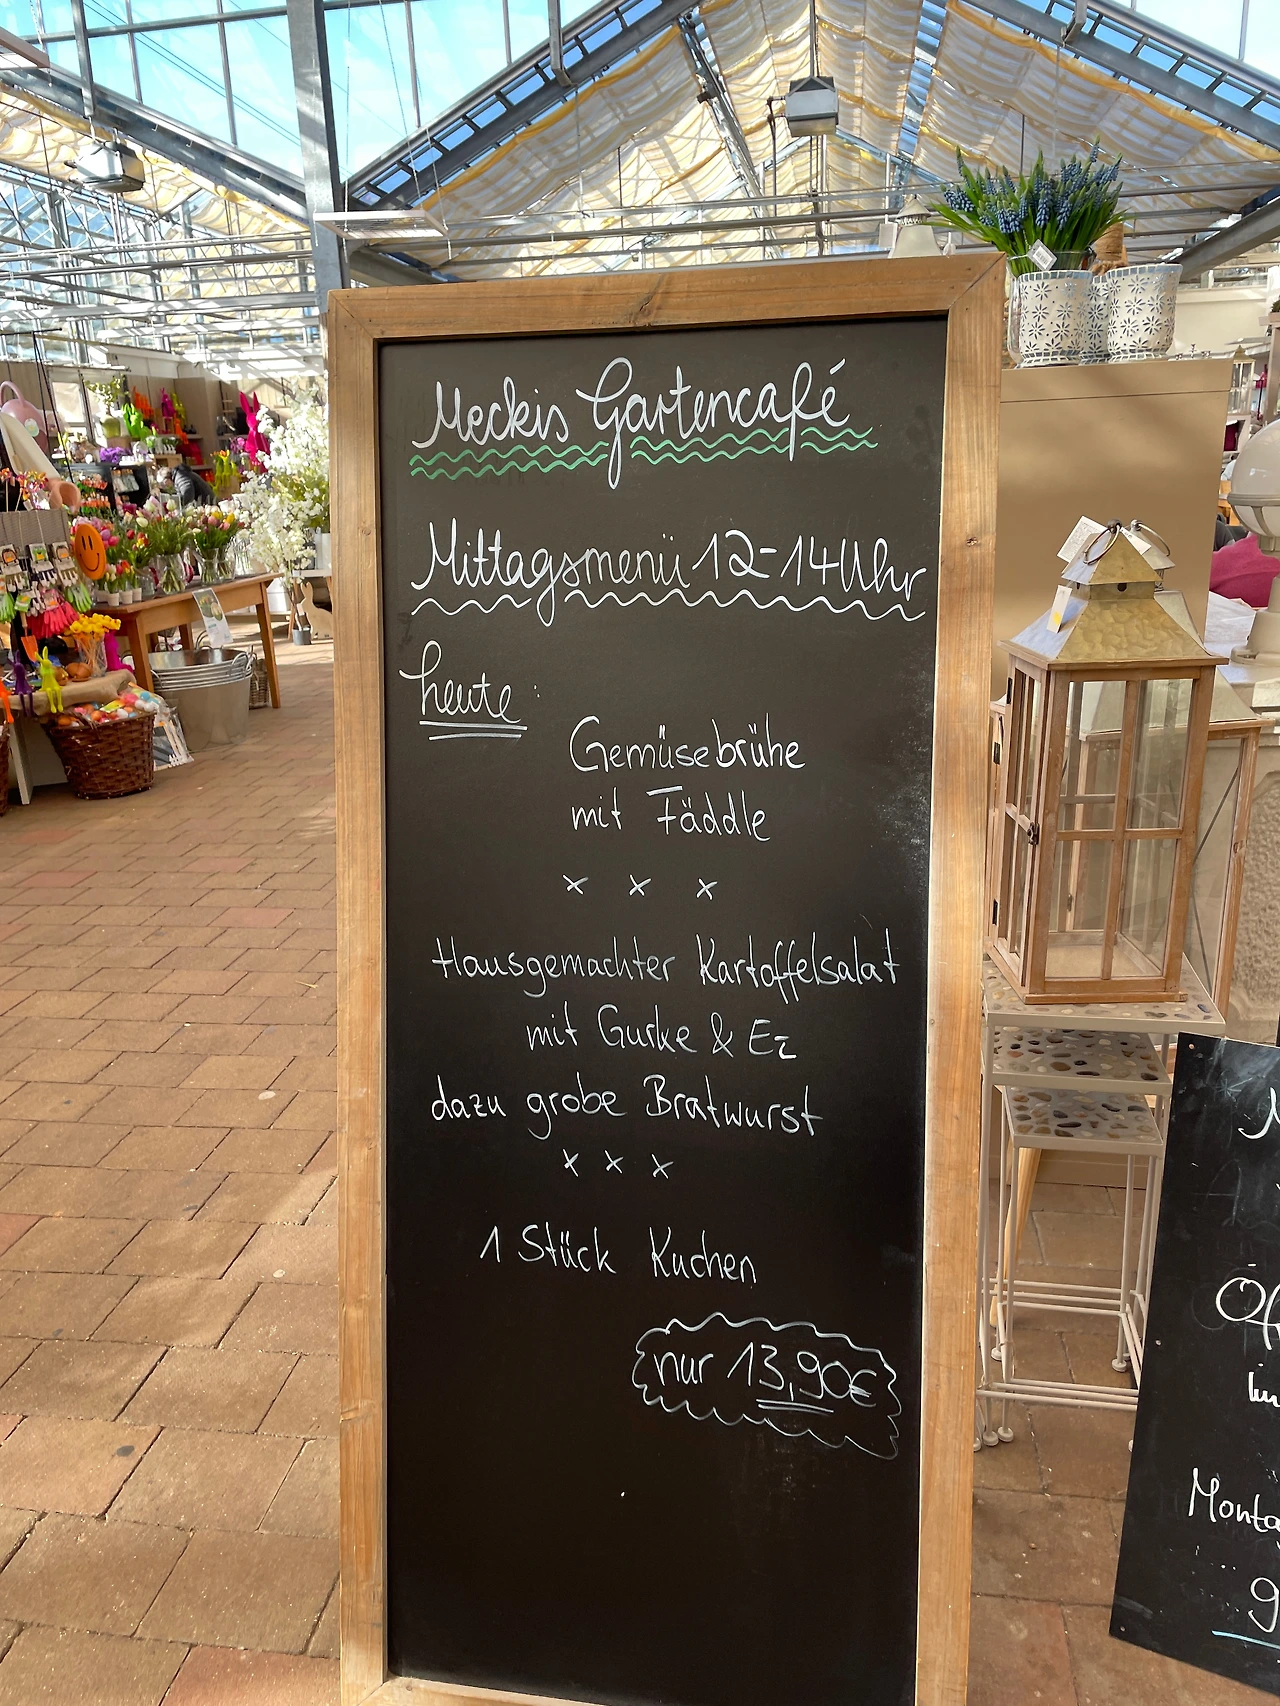 Meckis Gartencafé
Mittagsmenü 12-14 Uhr
heute:
Gemüsebrühe
mit Fäddle
x x x
Hausgemachter Kartoffelsalat
mit Gurke & Ei
dazu grobe Bratwurst
x x x
1 Stück Kuchen
nur 13,90€